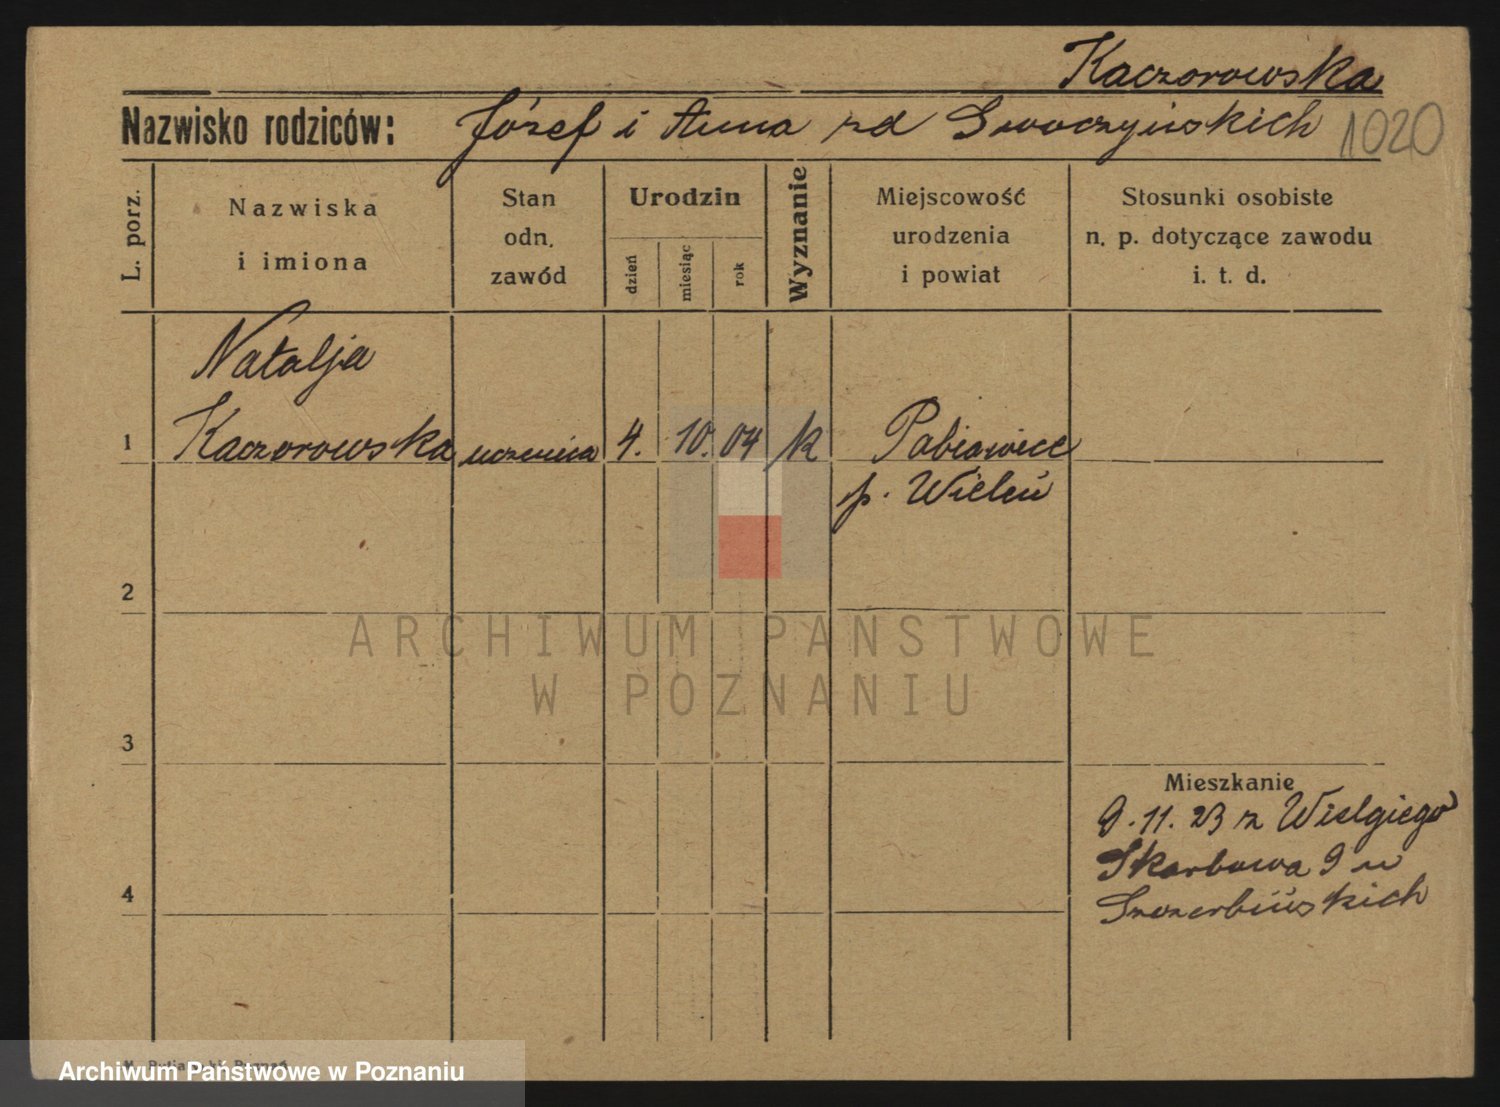 Kaczorowska
Nazwisko rodziców: Józef i Anna zd 1020
L. porz.
Nazwiska
i imiona
Stan
odn.
zawód
Urodzin
dzień
miesiąc
rok
Wyznanie
Miejscowość
urodzenia
i powiat
Stosunki osobiste
n. p. dotyczące zawodu
i. t. d.
Natalja
1 Kaczorowska uczenica 4. 10. 04 k Pabianice
p. Wieluń
2
ARCHIWUM PAŃSTWOWE
W POZNANIU
3
Mieszkanie
9.11.23 z Wielgiego
Skarbowa 9 u
4
Archiwum Państwowe w Poznaniu